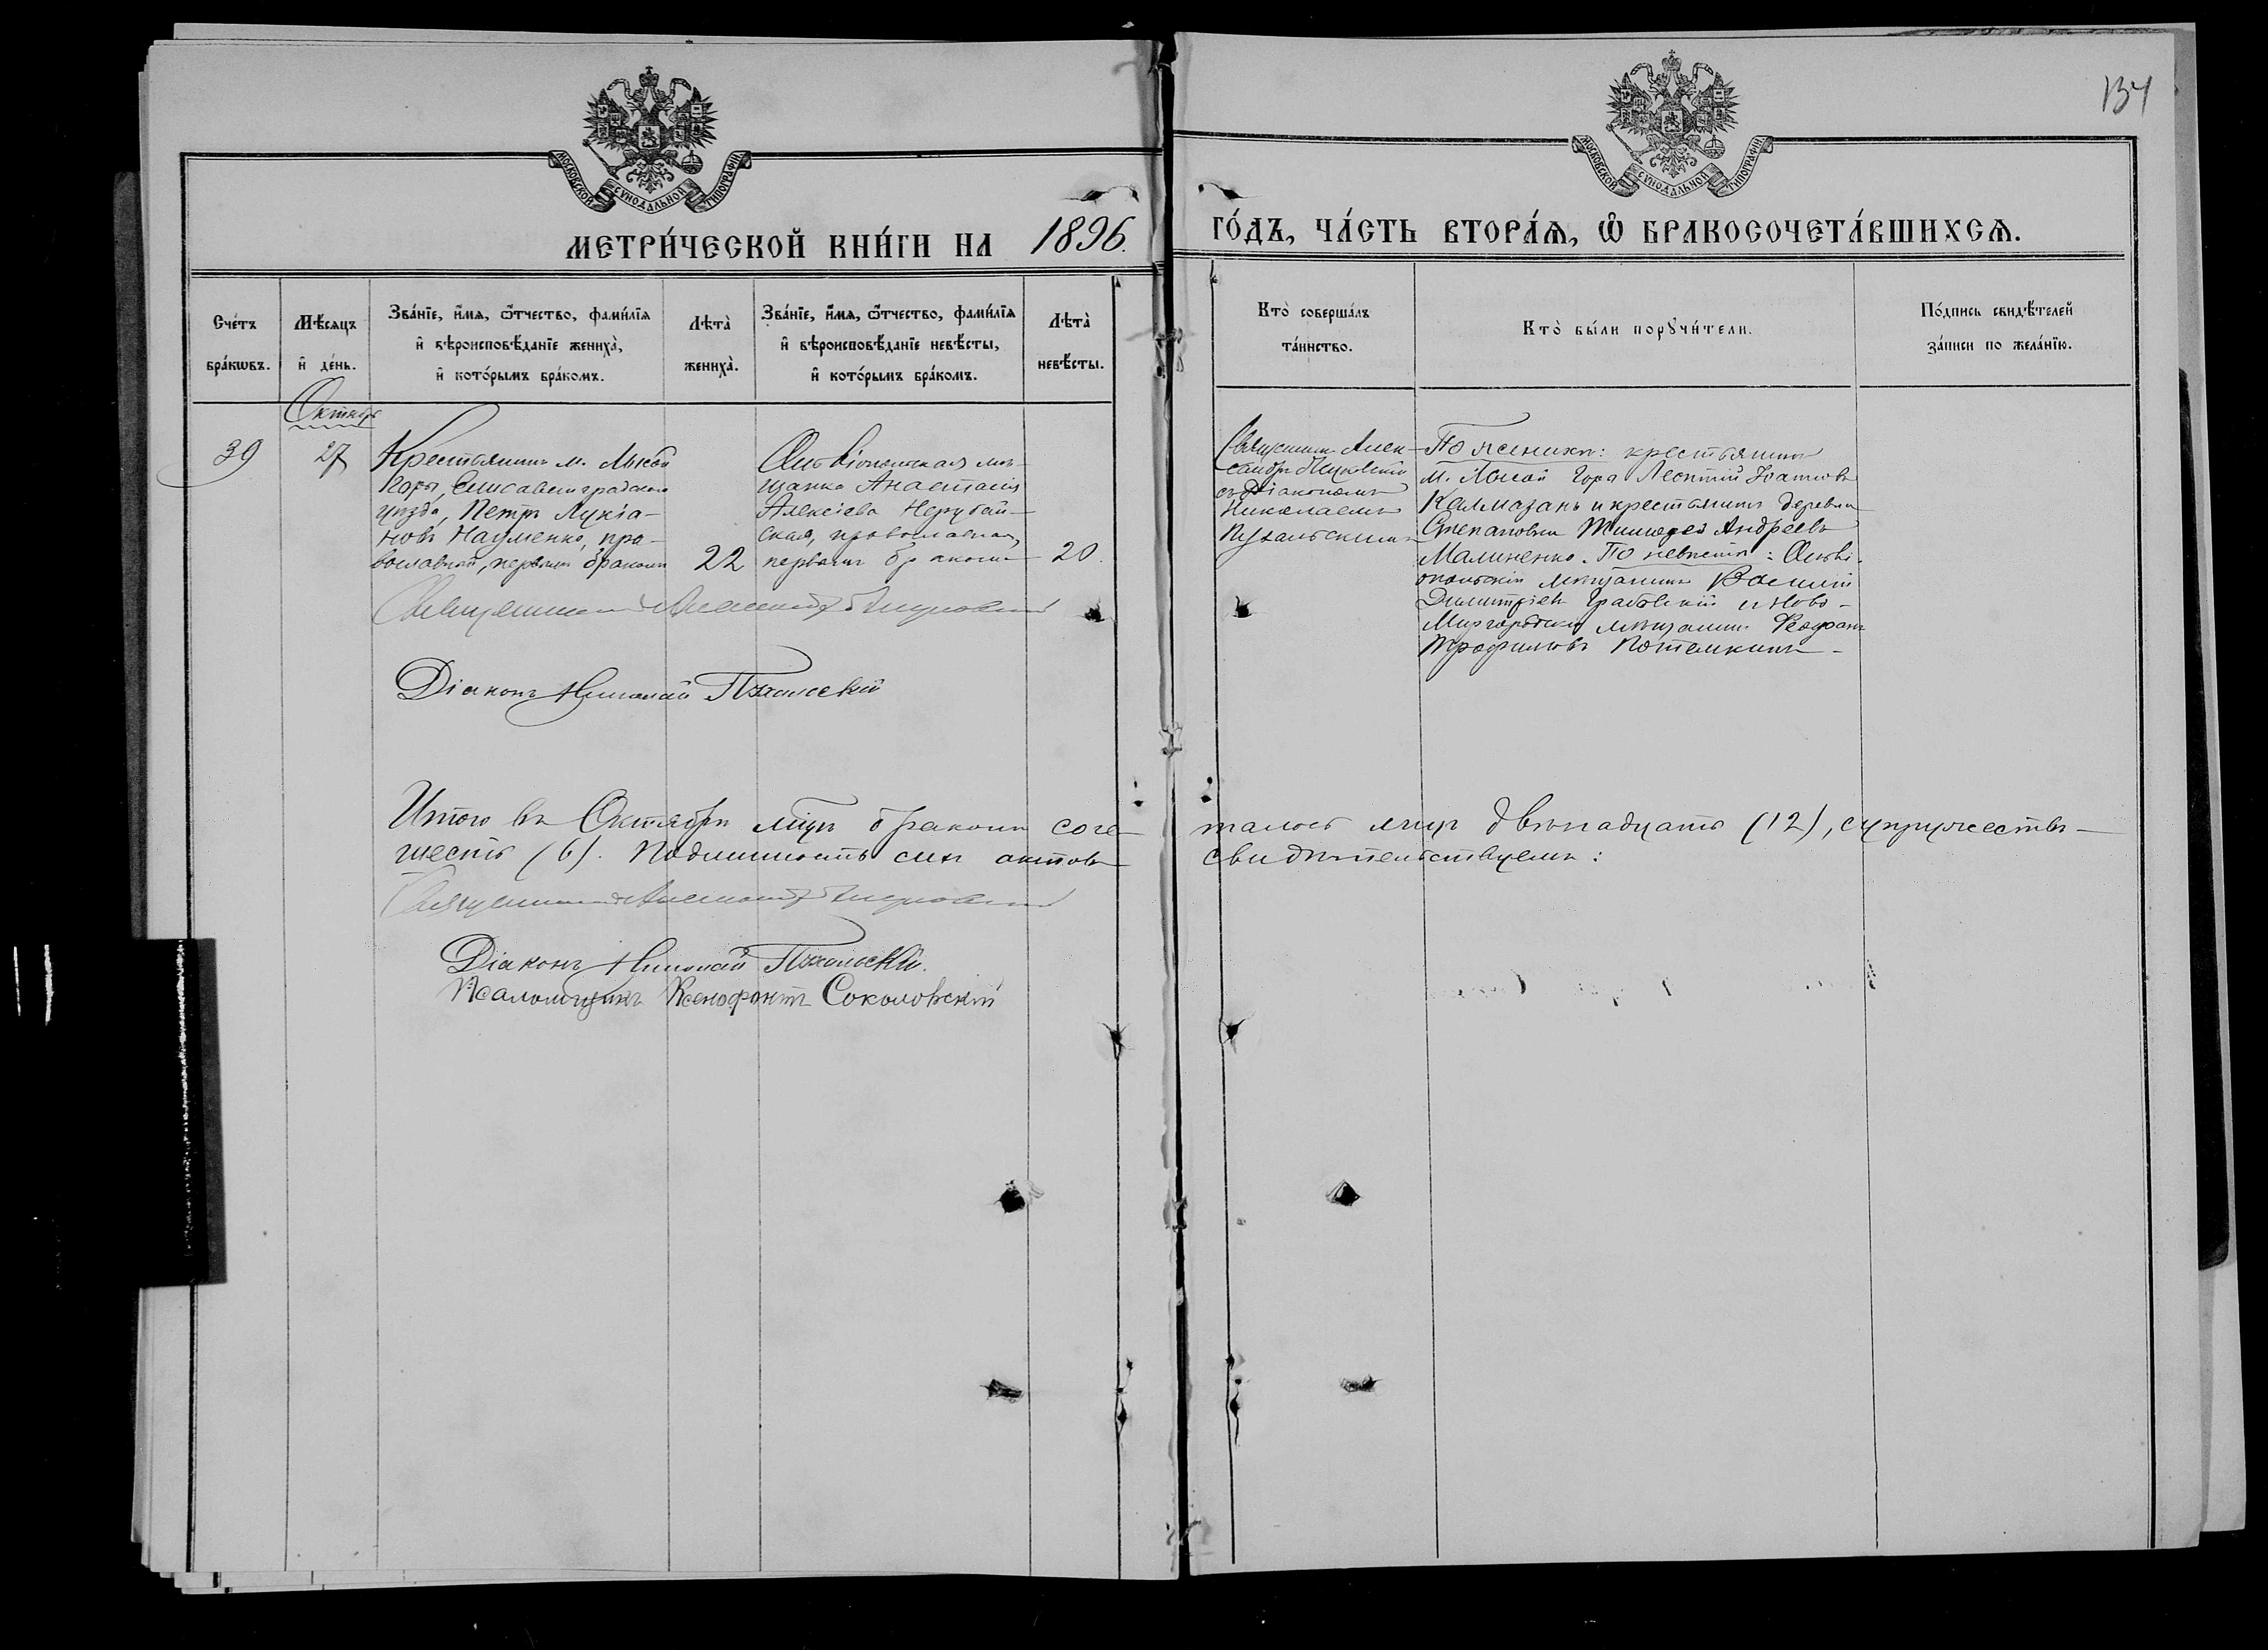 134
МОСКОВСКОЙ СѴНОДАЛЬНОЙ ТИПОГРАФІИ
МОСКОВСКОЙ СѴНОДАЛЬНОЙ ТИПОГРАФІИ
МЕТРИ́ЧЕСКОЙ КНИ́ГИ НА 1896.
ГО́ДЪ, ЧА́СТЬ ВТОРА́Ѧ, Ѽ БРАКОСОЧЕТА́ВШИХСѦ.
Сче́тъ
бра́кѡвъ.
Мѣ́сѧцъ
и҆ де́нь.
Зва́нїе, и҆́мѧ, ѻ҆́тчество, фами́лїѧ
и҆ вѣроисповѣ́данїе жениха̀,
и҆ кото́рымъ бра́комъ.
Лѣта̀
жениха̀.
Зва́нїе, и҆́мѧ, ѻ҆́тчество, фами́лїѧ
и҆ вѣроисповѣ́данїе невѣ́сты,
и҆ кото́рымъ бра́комъ.
Лѣта̀
невѣ́сты.
Кто̀ соверша́лъ
та́инство.
Кто̀ бы́ли порꙋчи́тели.
По́дпись свидѣ́телей
за́писи по жела́нїю.
Октябрь
39
27
Крестьянинъ м. Лысой
Горы, Елисаветградскаго
уѣзда, Петръ Лукіа-
новъ Науменко, пра-
вославный, первымъ бракомъ
22
Ольвіопольская мѣ-
щанка Анастасія
Алексіева Нерубай-
ская, православная,
первымъ бракомъ
20.
Священникъ Алек-
сандръ
съ Діакономъ
Николаемъ
По женихѣ: крестьянинъ
м. Лысой Горы Леонтій
Калмазанъ и крестьянинъ деревни
Степановки Тимоѳей Андреевъ
Малиненко. По невѣстѣ: Ольві-
опольскій мѣщанинъ Василій
Димитріевъ Грабовскій и Ново-
Миргородскій мѣщанинъ Ѳеофанъ
Трофимовъ Потемкинъ
Священникъ Александръ
Діаконъ Николай
Итого въ Октябрѣ мцѣ бракомъ соче-
талось лицъ двѣнадцать (12), супружествъ
шесть (6). Подлинность сихъ актовъ
свидѣтельствуемъ:
Священникъ Александръ
Діаконъ Николай
Псаломщикъ Ксенофонтъ Соколовскій